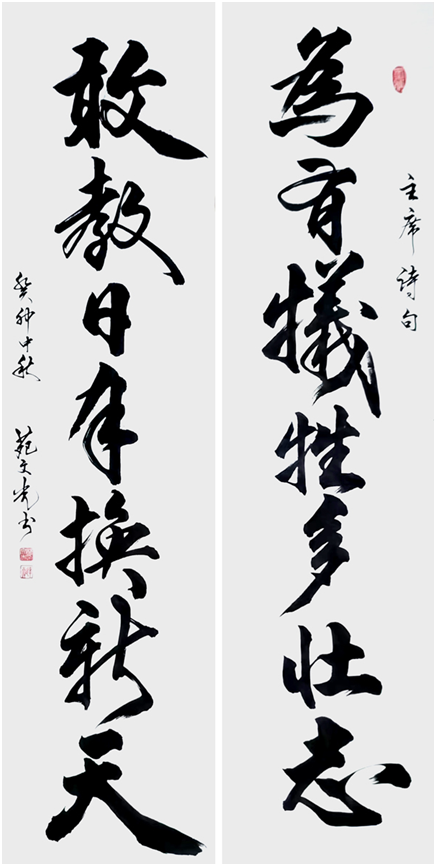 主席詩句
為有犧牲多壯志
敢教日月換新天
癸卯中秋 苑文光书